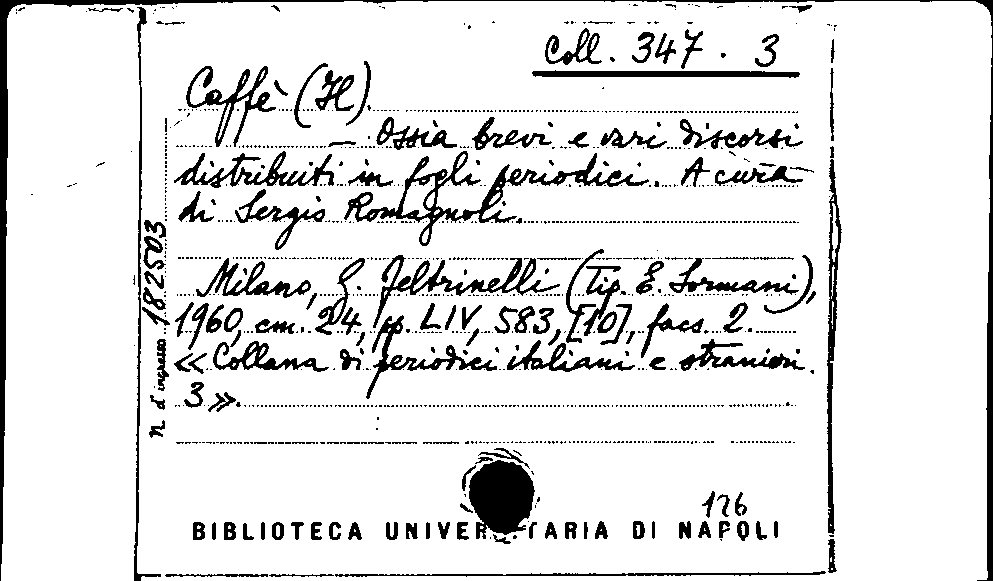 Coll. 347. 3
Caffè (Il).
— Ossia brevi e vari discorsi
distribuiti in fogli periodici. A cura
di Sergio Romagnoli.
Milano, G. Feltrinelli (Tip. E. Sormani),
1960, cm. 24, pp. LIV, 583, [10], facs. 2.
«Collana di periodici italiani e stranieri.
3».
N. d'ingresso 182503
126
BIBLIOTECA UNIVER TARIA DI NAPOLI